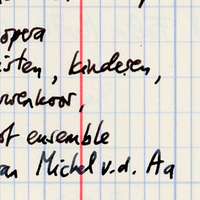 opera
isten, kinderen,
wenkoor,
ot ensemble
an Michel v.d. Aa